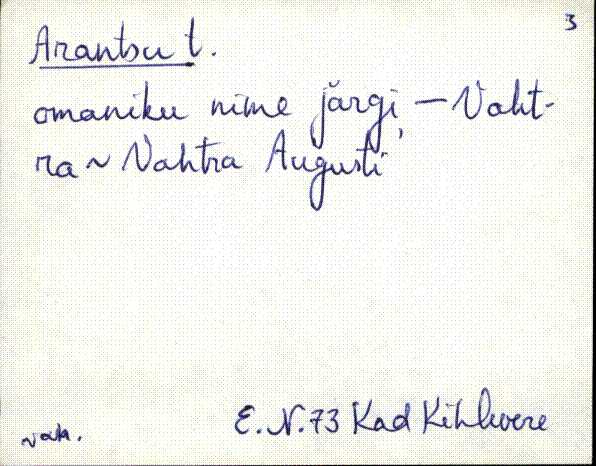 3
Arantsu t.
omaniku nime järgi, – Vaht-
ra ~ Vahtra Augusti
vak. E. N. 73 Kad Kihlevere